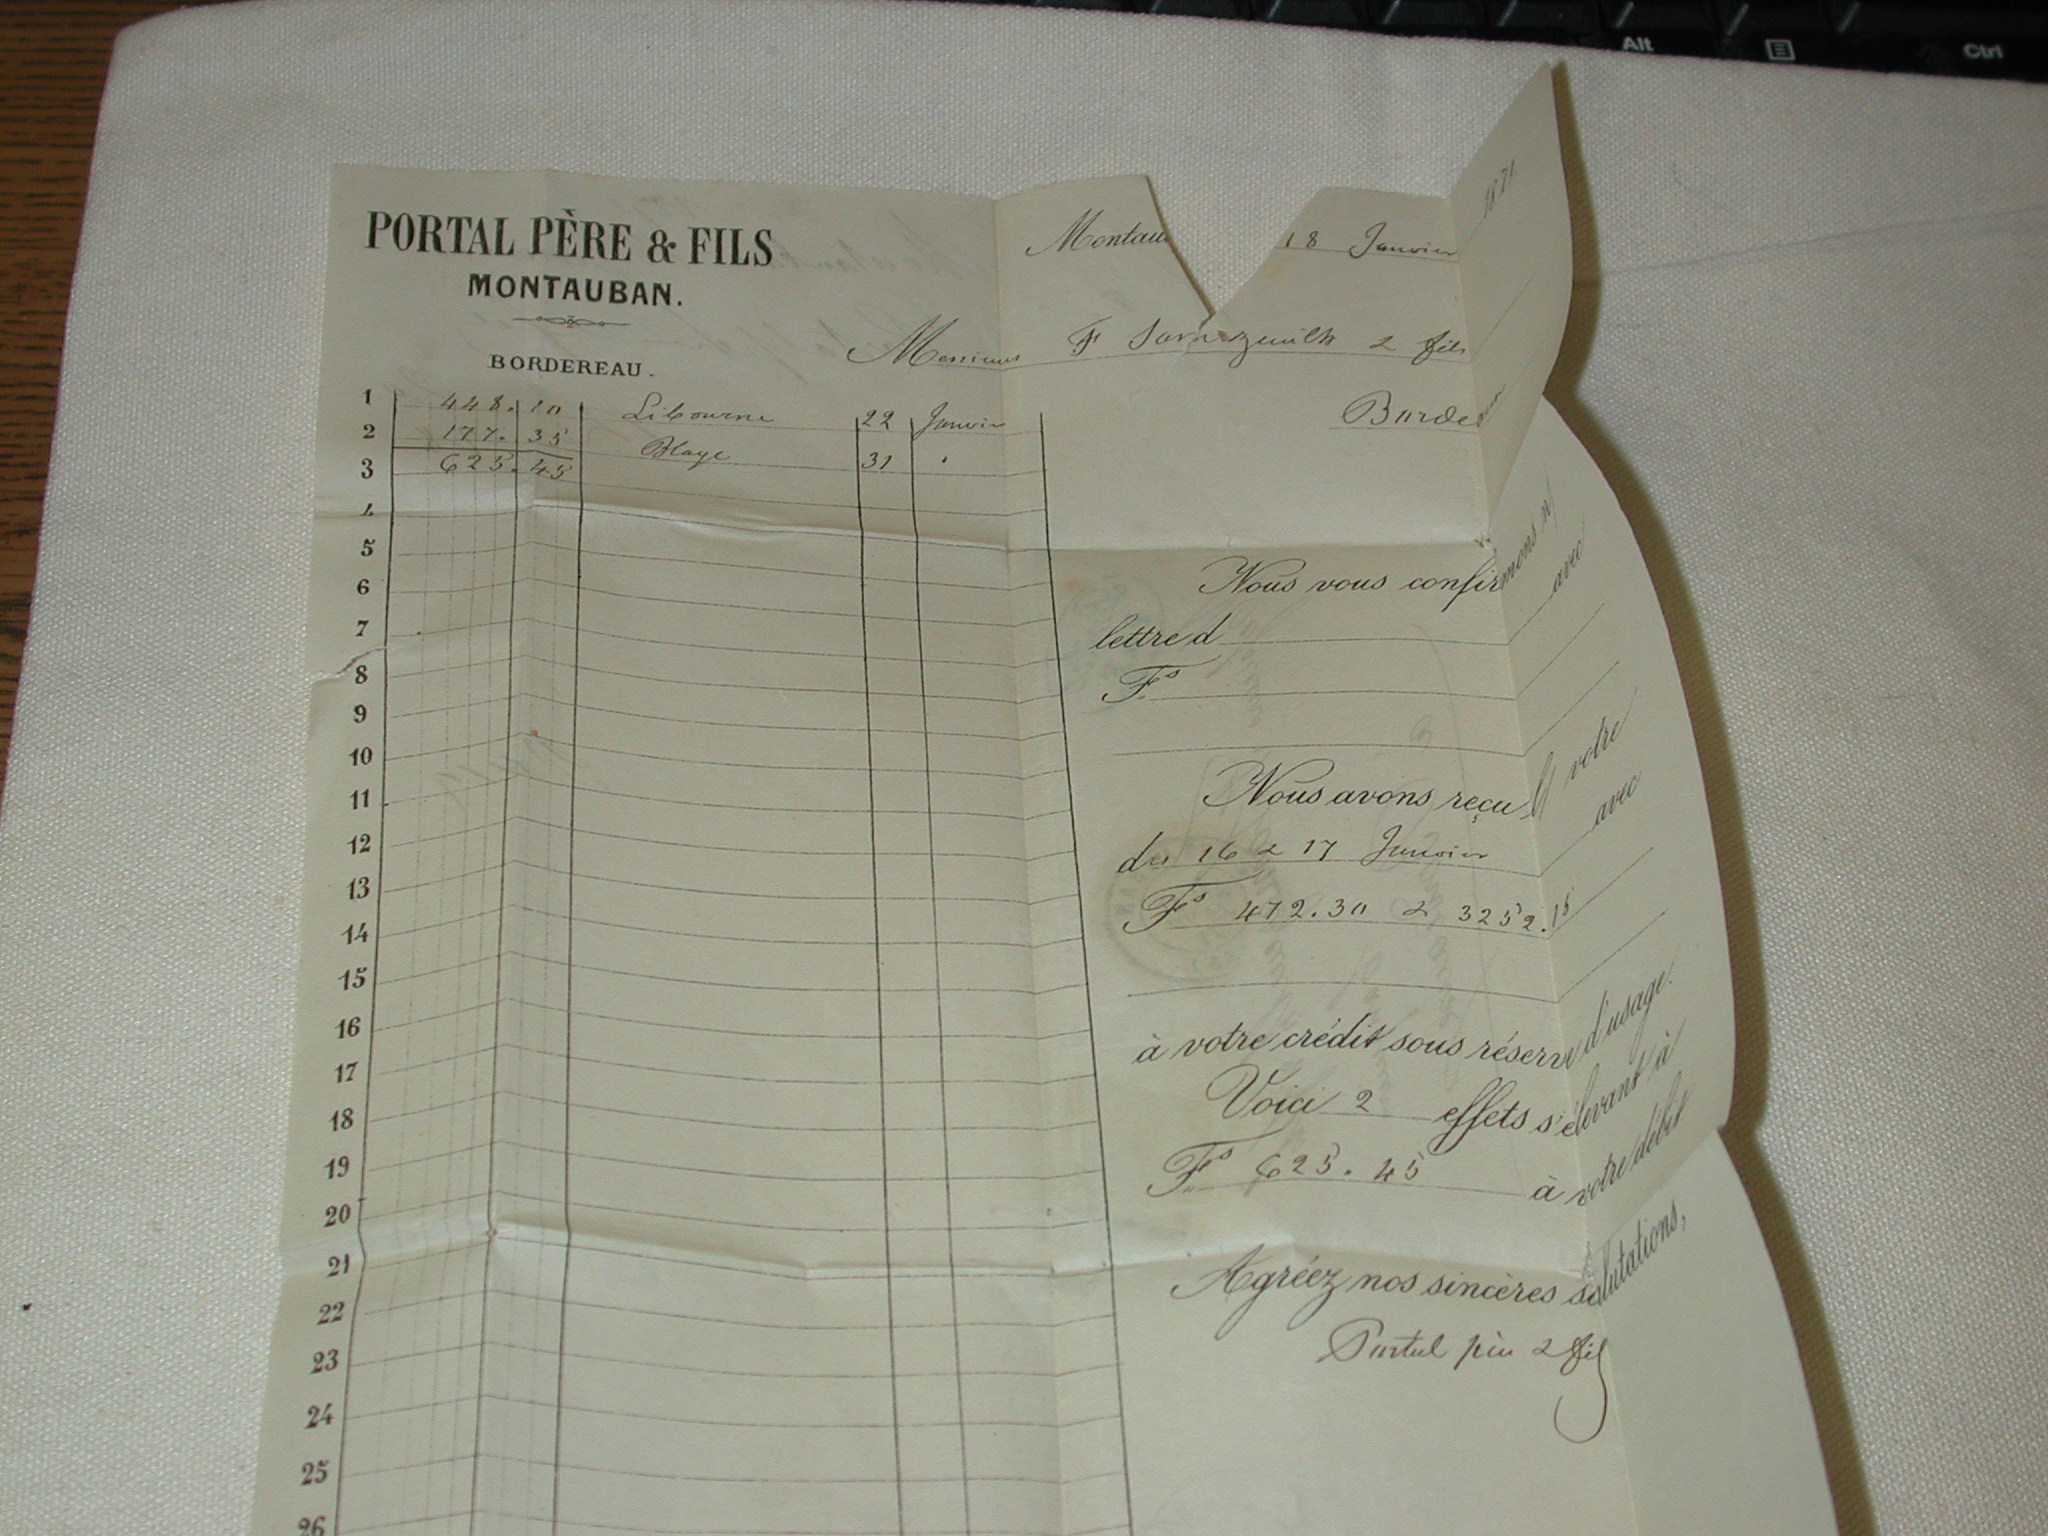 Alt
Ctrl
PORTAL PÈRE & FILS
MONTAUBAN.
Montau 18 Janvier 1871
Messieurs F & fils
Bordeaux
BORDEREAU.
1 448. 10 Libourne 22 Janvier
2 177. 35 Blaye 31 "
3 625. 45
4
5
6
7
8
9
10
11
12
13
14
15
16
17
18
19
20
21
22
23
24
25
26
Nous vous confirmons n
lettre d avec
Fs
Nous avons reçu votre
du 16 & 17 Janvier avec
Fs 472.30 & 3252.15
à votre crédit sous réserve d'usage.
Voici 2 effets s'élevant à
Fs 625.45 à votre débit
Agréez nos sincères salutations,
Portal père & fils